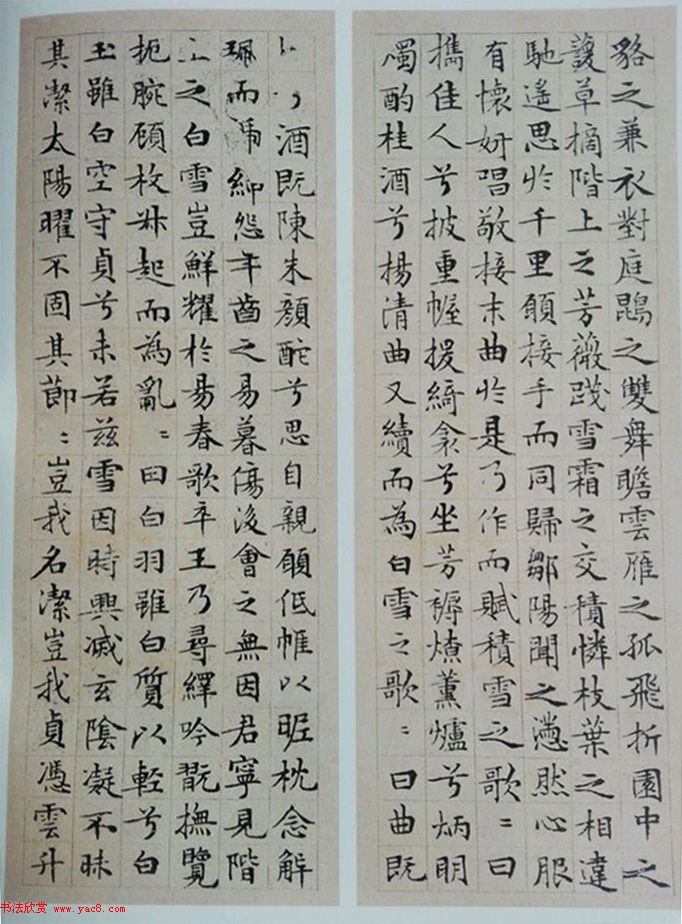 貉之兼衣對庭鵾之雙舞瞻雲雁之孤飛折園中之
蘐草摘階上之芳薇踐雪霜之交積憐枝葉之相違
馳遙思於千里願接手而同歸鄒陽聞之懣然心服
有懷妍唱敬接末曲於是乃作而賦積雪之歌〻曰
攜佳人兮披重幄援綺衾兮坐芳褥燎薰爐兮炳明
燭酌桂酒兮揚清曲又續而為白雪之歌〻曰曲既
酒既陳朱顏酡兮思自親願低帷以昵枕念解
珮而褫紳怨年齒之易暮傷後會之無因君寧見階
上之白雪豈鮮耀於昜春歌卒王乃尋繹吟翫撫覽
扼腕顧枚叔起而為亂〻曰白羽雖白質以輕兮白
玉雖白空守貞兮未若茲雪因時興滅玄陰凝不昧
其潔太陽曜不固其節〻豈我名潔豈我貞憑雲升
书法欣赏 www.yac8.com